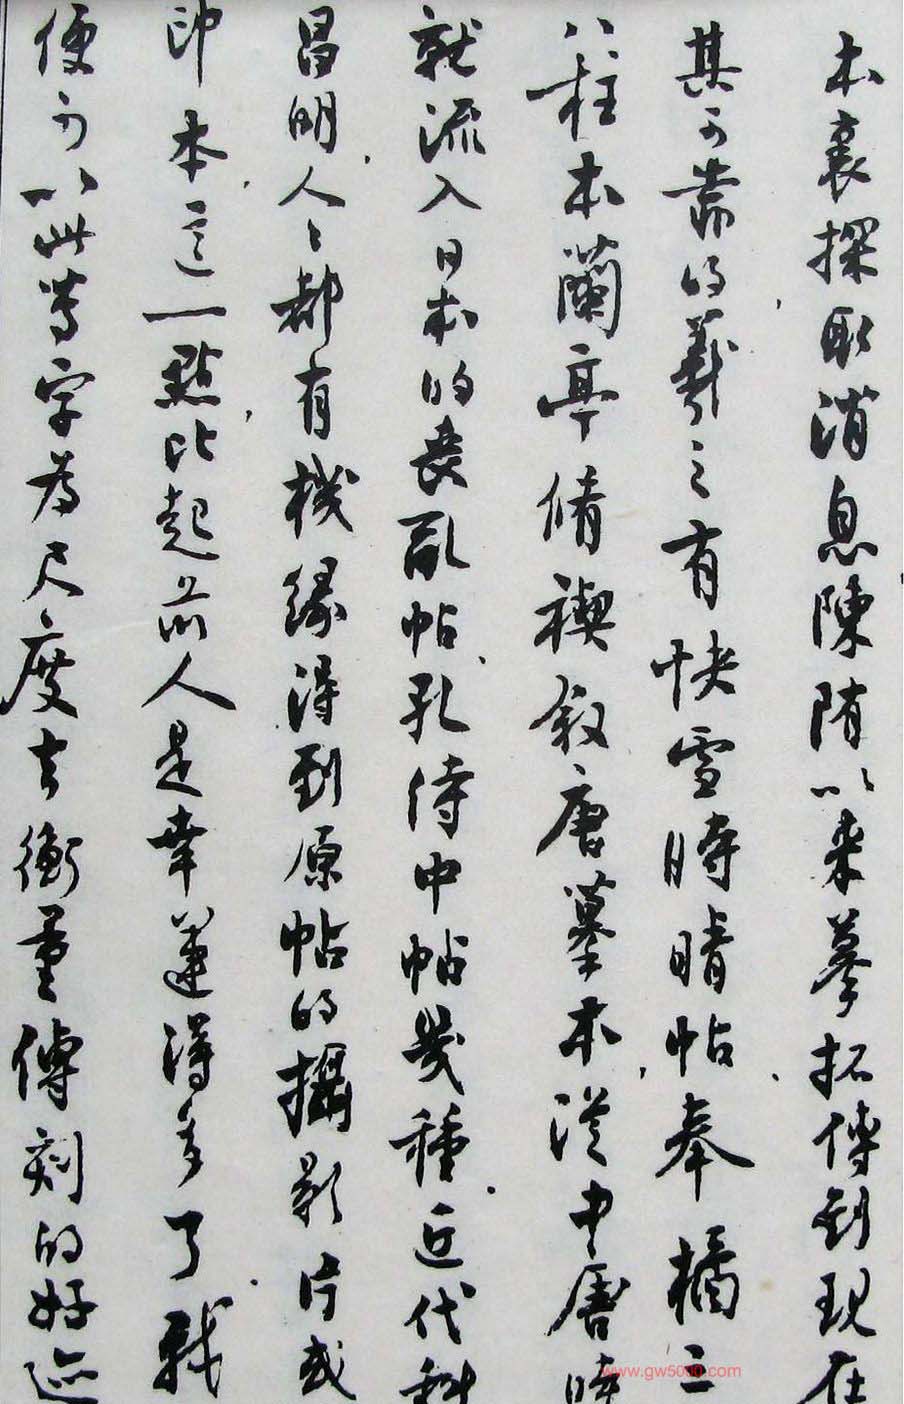 本裏探取消息陳隋以来摹拓傳到現在
其可靠的羲之有快雪時晴帖奉橘三
八柱本蘭亭脩禊叙唐摹本從中唐時
就流入日本的喪亂帖孔侍中帖幾種近代科
昌明人々都有機緣得到原帖的攝影片或
印本這一點比起前人是幸運得多了我
便可以此等字為尺度去衡量傅刻的好迹
www.gw5000.com